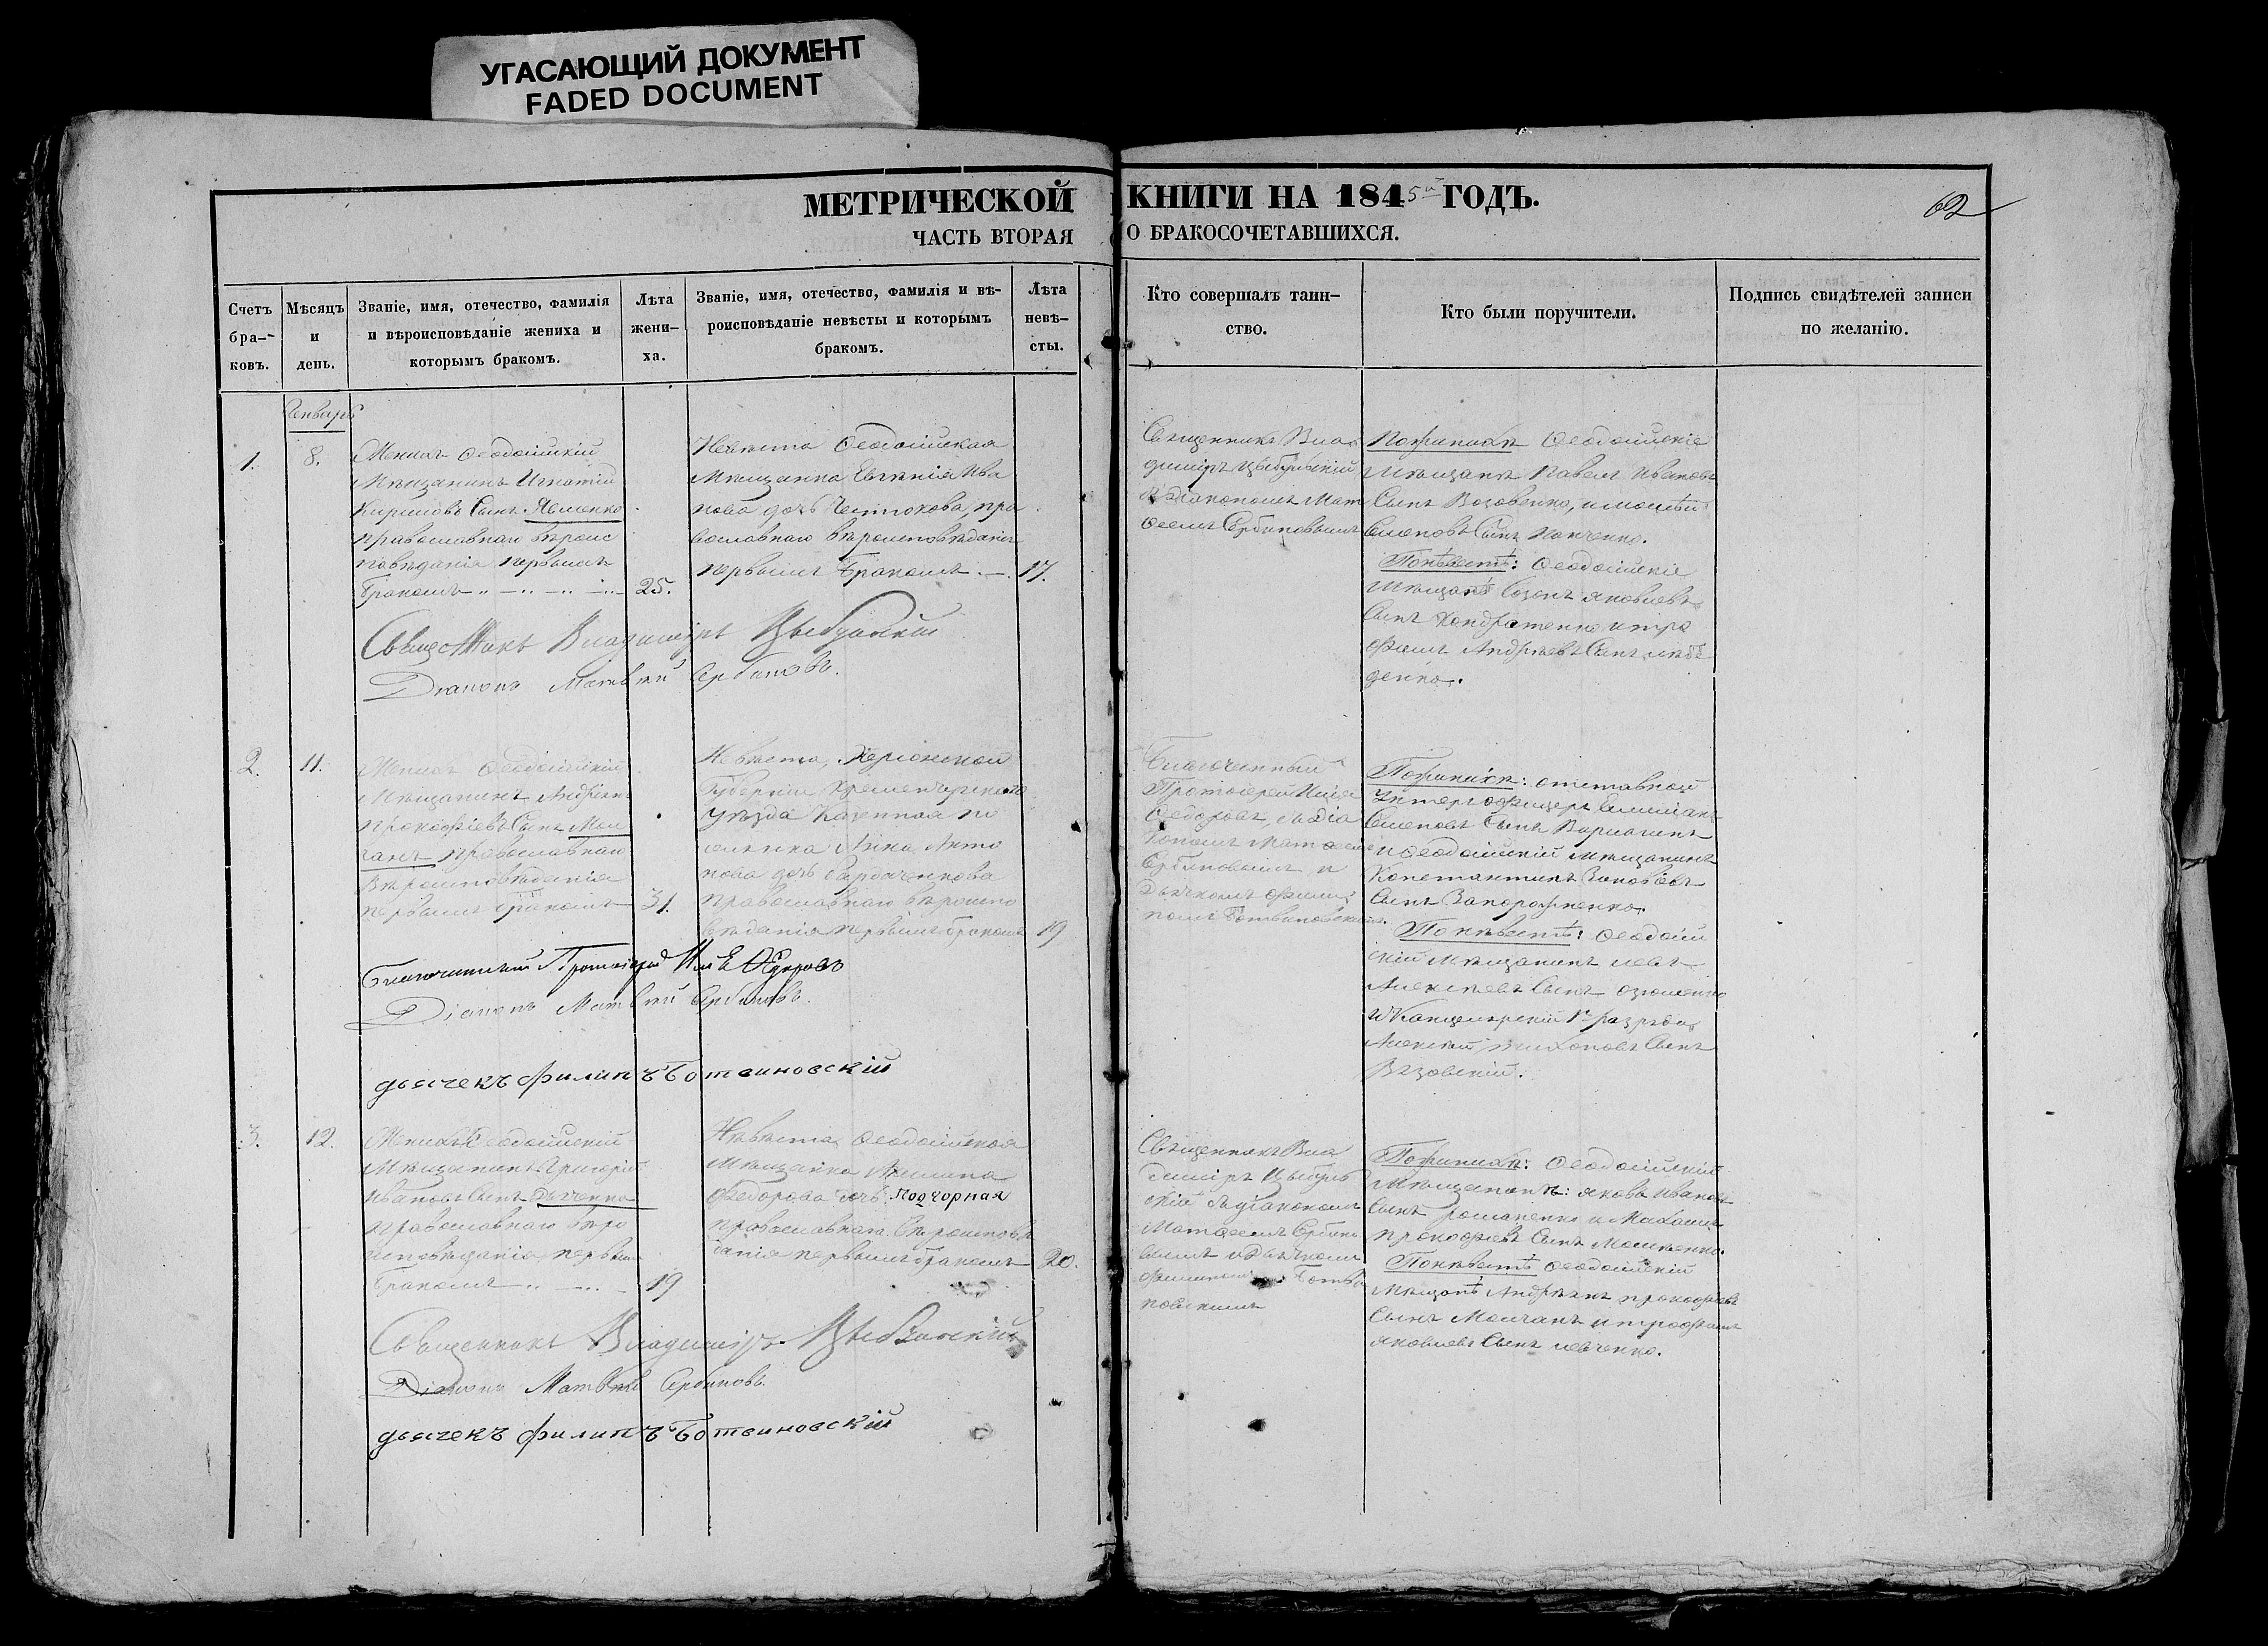 УГАСАЮЩИЙ ДОКУМЕНТ
FADED DOCUMENT
МЕТРИЧЕСКОЙ КНИГИ НА 1845й ГОДЪ.
62
ЧАСТЬ ВТОРАЯ О БРАКОСОЧЕТАВШИХСЯ.
Счетъ бра-ковъ.
Мѣсяцъ и день.
Званіе, имя, отечество, фамилія
и вѣроисповѣданіе жениха и
которымъ бракомъ.
Лѣта жени-ха.
Званіе, имя, отечество, фамилія и вѣ-
роисповѣданіе невѣсты и которымъ
бракомъ.
Лѣта невѣ-сты.
Кто совершалъ таин-
ство.
Кто были поручители.
Подпись свидѣтелей записи
по желанію.
Генварь
1.
8.
Женихъ Ѳеодосійскій
Мѣщанинъ Игнатій
Кириловъ Сынъ Явменко
православнаго вѣроис
повѣданія первымъ
бракомъ
25.
Невѣста Ѳеодосійская
Мѣщанка Евгенія Ива
нова дочь пра
вославнаго вѣроисповѣданія
первымъ бракомъ
17.
Священникъ Вла
димиръ Цыбульскій
съ Діакономъ Мат
ѳеемъ Сербиновымъ
По женихѣ Ѳеодосійскіе
Мѣщане Павелъ Ивановъ
Сынъ
Семеновъ Сынъ
По невѣстѣ: Ѳеодосійскіе
Мѣщане Созонъ Яковлевъ
Сынъ Кондратенко и тро
фимъ Андреевъ Сынъ
денко.
Священникъ Владимиръ Цыбульскій
Діаконъ Матвѣй Сербиновъ.
2.
11.
Женихъ Ѳеодосійскій
Мѣщанинъ Андріянъ
Прокофіевъ Сынъ Мол
чанъ православнаго
вѣроисповѣданія
первымъ бракомъ
31.
Невѣста, Херсонской
Губерніи Кременчугскаго
уѣзда Казенная по
селянка Анна Анто
нова дочь
православнаго вѣроиспо
вѣданія первымъ бракомъ
19
Благочинный
Протоіерей Илія
Ѳедоровъ, съ Діа
кономъ Матѳеемъ
Сербиновымъ и
Дьячкомъ Филип
помъ Ботвиновскимъ.
По женихѣ: отставной
Унтеръ офицеръ
Семеновъ Сынъ
и Ѳеодосійскій мѣщанинъ
Константинъ
Сынъ Запорожченко.
По невѣстѣ: Ѳеодосій
скій Мѣщанинъ левъ
Алексѣевъ Сынъ
и Канцелярскій 1го разряда
Алексѣй Сынъ
Благочинный Протоіерей Илія Ѳедоровъ
Діаконъ Матвѣй Сербиновъ.
дьячекъ филипъ Ботвиновскій
3.
12.
Женихъ Ѳеодосійскій
Мѣщанинъ Григорій
Ивановъ Сынъ Дьяченко
православнаго вѣро
исповѣданія первымъ
бракомъ
19
Невѣста Ѳеодосійская
Мѣщанка Акилина
Ѳедорова дочь Подгорная
православнаго вѣроисповѣ
данія первымъ бракомъ
20.
Священникъ Вла
димиръ Цыбуль
скій съ діакономъ
Матѳеемъ Сербино
вымъ и Дьячкомъ
Филиппомъ Ботви
новскимъ
По женихѣ: Ѳеодосійскіе
Мѣщане: Яковъ Ивановъ
Сынъ романенко и
прокофіевъ Сынъ
По невѣстѣ Ѳеодосійскій
Мѣщане Андріянъ прокофіевъ
Сынъ Молчанъ и трофимъ
Яковлевъ Сынъ левченко.
Священникъ Владимиръ Цыбульскій
Діаконъ Матвѣй Сербиновъ.
дьячекъ филипъ Ботвиновскій